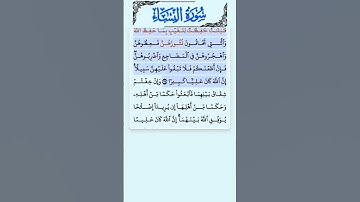 سُورَةُ النِّسَاءِ
قَٰنِتَٰتٌ حَٰفِظَٰتٌ لِّلْغَيْبِ بِمَا حَفِظَ اللَّهُ
وَالَّٰتِي تَخَافُونَ نُشُوزَهُنَّ فَعِظُوهُنَّ
وَاهْجُرُوهُنَّ فِي الْمَضَاجِعِ وَاضْرِبُوهُنَّ
فَإِنْ أَطَعْنَكُمْ فَلَا تَبْغُوا عَلَيْهِنَّ سَبِيلًا
إِنَّ اللَّهَ كَانَ عَلِيًّا كَبِيرًا وَإِنْ خِفْتُمْ
شِقَاقَ بَيْنِهِمَا فَابْعَثُوا حَكَمًا مِّنْ أَهْلِهِ
وَحَكَمًا مِّنْ أَهْلِهَا إِن يُرِيدَا إِصْلَاحًا
يُوَفِّقِ اللَّهُ بَيْنَهُمَا إِنَّ اللَّهَ كَانَ عَلِيمًا